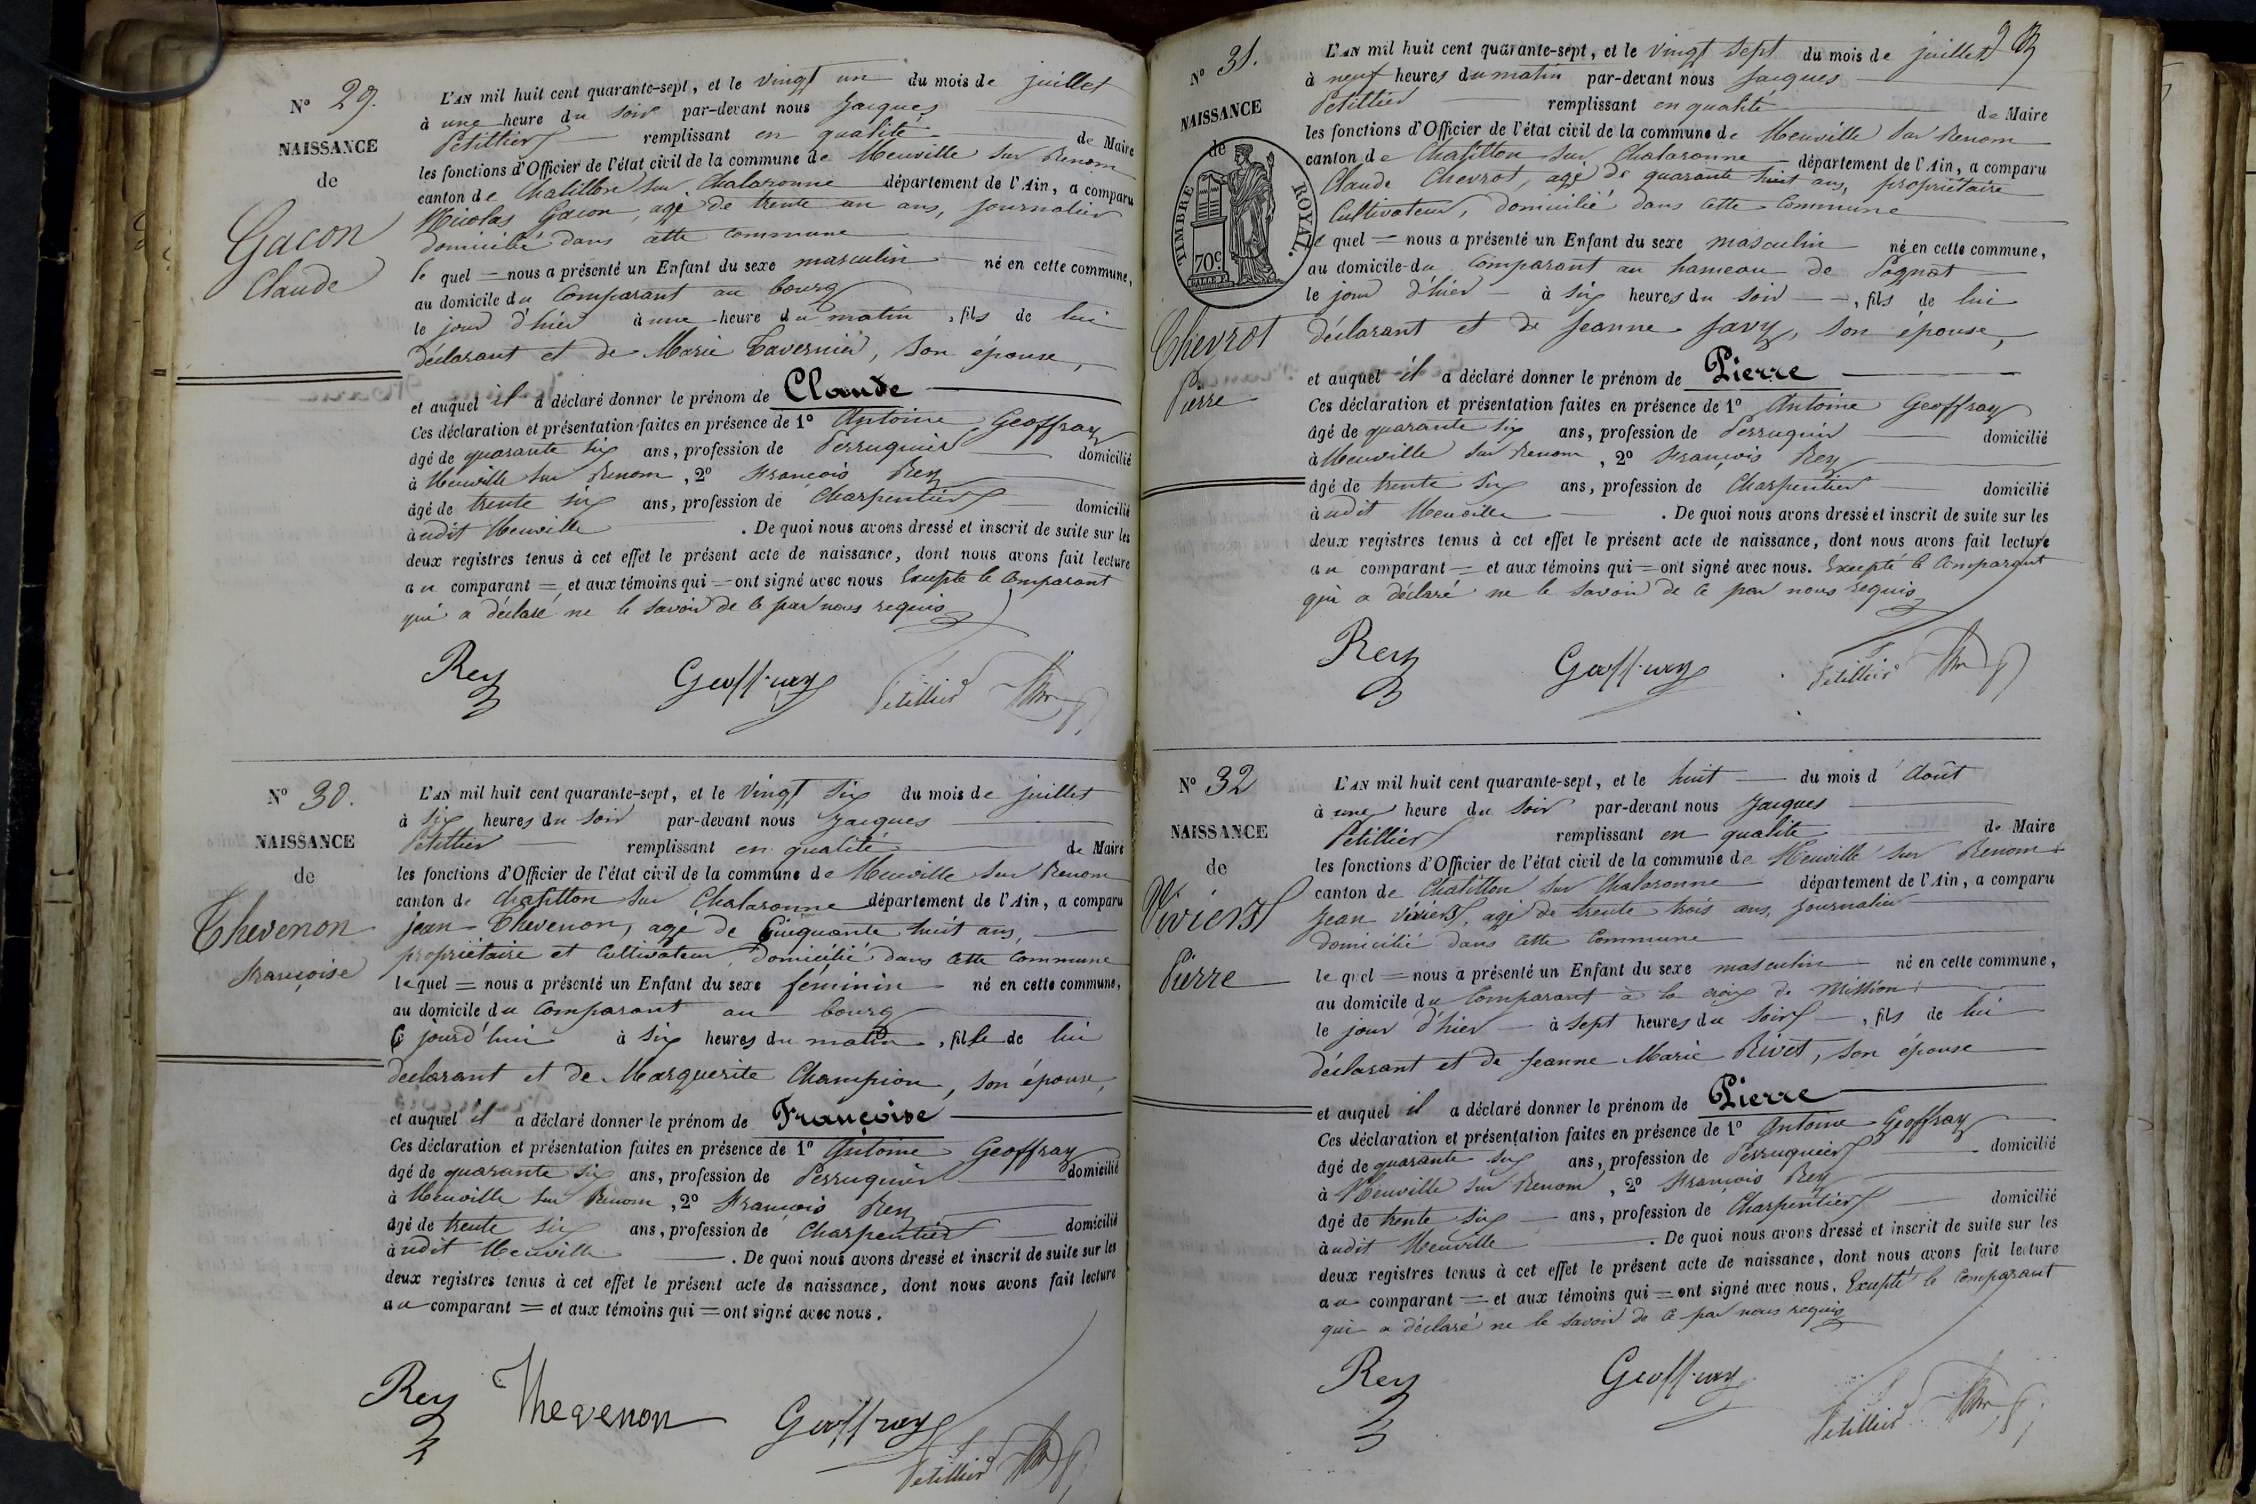 N° 29.
NAISSANCE
de
Gacon
Claude
L'AN mil huit cent quarante-sept, et le vingt un du mois de juillet
à une heure du soir par-devant nous Jacques
Petillier remplissant en qualité de Maire
les fonctions d'Officier de l'état civil de la commune de Neuville sur Renom
canton de Chatillon sur Chalaronne département de l'Ain, a comparu
Nicolas Gacon, agé de trente un ans, journalier
domicilié dans cette commune
le quel = nous a présenté un Enfant du sexe masculin né en cette commune,
au domicile du Comparant au bourg
le jour d'hier à une heure du matin, fils de lui
déclarant et de Marie Tavernier, son épouse,
et auquel il a déclaré donner le prénom de Claude
Ces déclaration et présentation faites en présence de 1° Antoine Geoffray
âgé de quarante six ans, profession de Perruquier domicilié
à Neuville sur Renom, 2° François Rey
âgé de trente six ans, profession de Charpentier domicilié
audit Neuville . De quoi nous avons dressé et inscrit de suite sur les
deux registres tenus à cet effet le présent acte de naissance, dont nous avons fait lecture
au comparant = et aux témoins qui = ont signé avec nous Excepté le Comparant
qui a déclaré ne le savoir de ce par nous requis
Rey Geoffray Petillier
N° 30.
NAISSANCE
de
Thevenon
Françoise
L'AN mil huit cent quarante-sept, et le vingt six du mois de juillet
à six heures du soir par-devant nous Jacques
Petillier remplissant en qualité de Maire
les fonctions d'Officier de l'état civil de la commune de Neuville sur Renom
canton de Chatillon sur Chalaronne département de l'Ain, a comparu
jean Thevenon, agé de Cinquante huit ans,
propriétaire et Cultivateur domicilié dans cette commune
lequel = nous a présenté un Enfant du sexe féminin né en cette commune,
au domicile du Comparant au bourg
Ce jourd'hui à six heures du matin, fille de lui
déclarant et de Marguerite Champion, son épouse,
et auquel il a déclaré donner le prénom de Françoise
Ces déclaration et présentation faites en présence de 1° Antoine Geoffray
âgé de quarante six ans, profession de Perruquier domicilié
à Neuville sur Renom, 2° François Rey
âgé de trente six ans, profession de Charpentier domicilié
audit Neuville . De quoi nous avons dressé et inscrit de suite sur les
deux registres tenus à cet effet le présent acte de naissance, dont nous avons fait lecture
au comparant = et aux témoins qui = ont signé avec nous.
Rey Thevenon Geoffray
Petillier
N° 31.
NAISSANCE
de
TIMBRE ROYAL.
70c
Chevrot
Pierre
L'AN mil huit cent quarante-sept, et le vingt sept du mois de juillet
à neuf heures du matin par-devant nous Jacques
Petillier remplissant en qualité de Maire
les fonctions d'Officier de l'état civil de la commune de Neuville sur Renom
canton de Chatillon sur Chalaronne département de l'Ain, a comparu
Claude Chevrot, agé de quarante huit ans, propriétaire
Cultivateur, domicilié dans cette Commune
le quel = nous a présenté un Enfant du sexe masculin né en cette commune,
au domicile du Comparant au hameau de Pognat
le jour d'hier à six heures du soir, fils de lui
déclarant et de Jeanne Savy, son épouse,
et auquel il a déclaré donner le prénom de Pierre
Ces déclaration et présentation faites en présence de 1° Antoine Geoffray
âgé de quarante six ans, profession de Perruquier domicilié
à Neuville sur Renom, 2° François Rey
âgé de trente six ans, profession de Charpentier domicilié
audit Neuville . De quoi nous avons dressé et inscrit de suite sur les
deux registres tenus à cet effet le présent acte de naissance, dont nous avons fait lecture
au comparant = et aux témoins qui = ont signé avec nous. Excepté le Comparant
qui a déclaré ne le savoir de ce par nous requis
Rey Geoffray Petillier
N° 32
NAISSANCE
de
Viviers
Pierre
L'AN mil huit cent quarante-sept, et le huit du mois d'Août
à une heure du soir par-devant nous Jacques
Petillier remplissant en qualité de Maire
les fonctions d'Officier de l'état civil de la commune de Neuville sur Renom
canton de Chatillon sur Chalaronne département de l'Ain, a comparu
Jean Viviers, agé de trente trois ans, journalier
domicilié dans cette Commune
le quel = nous a présenté un Enfant du sexe masculin né en cette commune,
au domicile du Comparant à la croix de Mission
le jour d'hier à sept heures du soir, fils de lui
déclarant et de Jeanne Marie Rivet, son épouse
et auquel il a déclaré donner le prénom de Pierre
Ces déclaration et présentation faites en présence de 1° Antoine Geoffray
âgé de quarante six ans, profession de Perruquier domicilié
à Neuville sur Renom, 2° François Rey
âgé de trente six ans, profession de Charpentier domicilié
audit Neuville . De quoi nous avons dressé et inscrit de suite sur les
deux registres tenus à cet effet le présent acte de naissance, dont nous avons fait lecture
au comparant = et aux témoins qui = ont signé avec nous. Excepté le Comparant
qui a déclaré ne le savoir de ce par nous requis
Rey Geoffray
Petillier